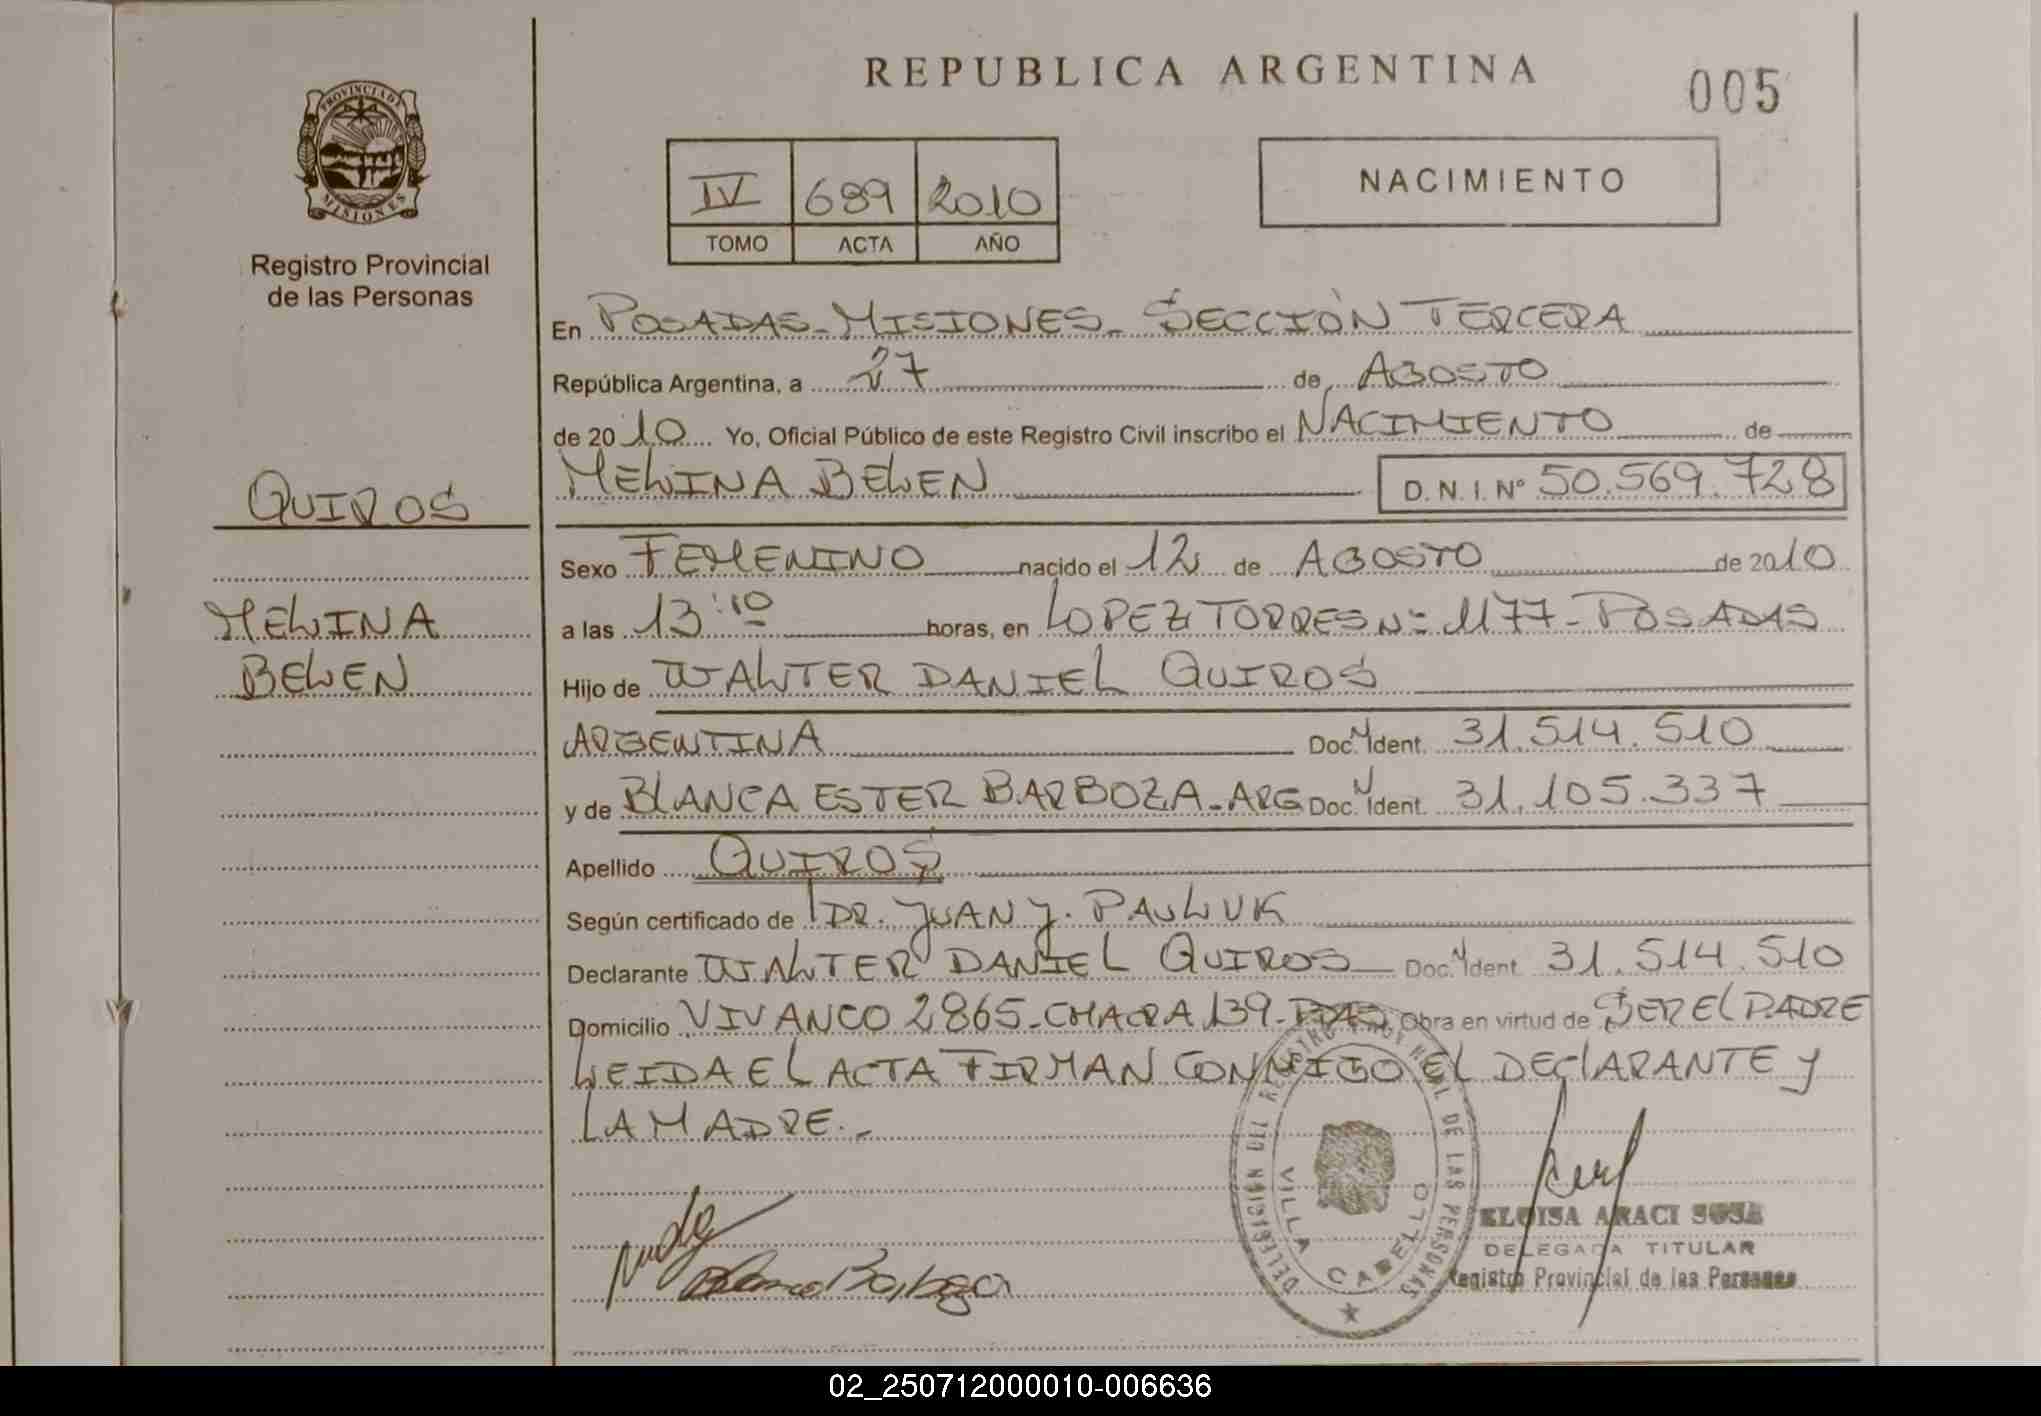 REPUBLICA ARGENTINA
005
PROVINCIA DE
MISIONES
Registro Provincial
de las Personas
IV 689 2010
TOMO ACTA AÑO
NACIMIENTO
En POSADAS-MISIONES- SECCIÓN TERCERA
República Argentina, a 27 de AGOSTO
de 2010 Yo, Oficial Público de este Registro Civil inscribo el NACIMIENTO de
MELINA BELEN D.N.I.Nº 50.569.728
QUIROS
MELINA
BELEN
Sexo FEMENINO nacido el 12 de AGOSTO de 2010
a las 13:10 horas, en LOPEZ TORRES Nº 1177-POSADAS
Hijo de WALTER DANIEL QUIROS
ARGENTINA Doc. Ident. 31.514.510
y de BLANCA ESTER BARBOZA-ARG Doc. Ident. 31.105.337
Apellido QUIROS
Según certificado de DR. JUAN J. PAWLUK
Declarante WALTER DANIEL QUIROS Doc. Ident. 31.514.510
Domicilio VIVANCO 2865-CHACRA 139- Obra en virtud de SER EL PADRE
LEIDA EL ACTA FIRMAN CONMIGO EL DECLARANTE Y
LA MADRE.-
DELEGACION DEL REGISTRO DE LAS PERSONAS
VILLA CABELLO
ELOISA ARACI SOSA
DELEGADA TITULAR
Registro Provincial de las Personas
02_250712000010-006636